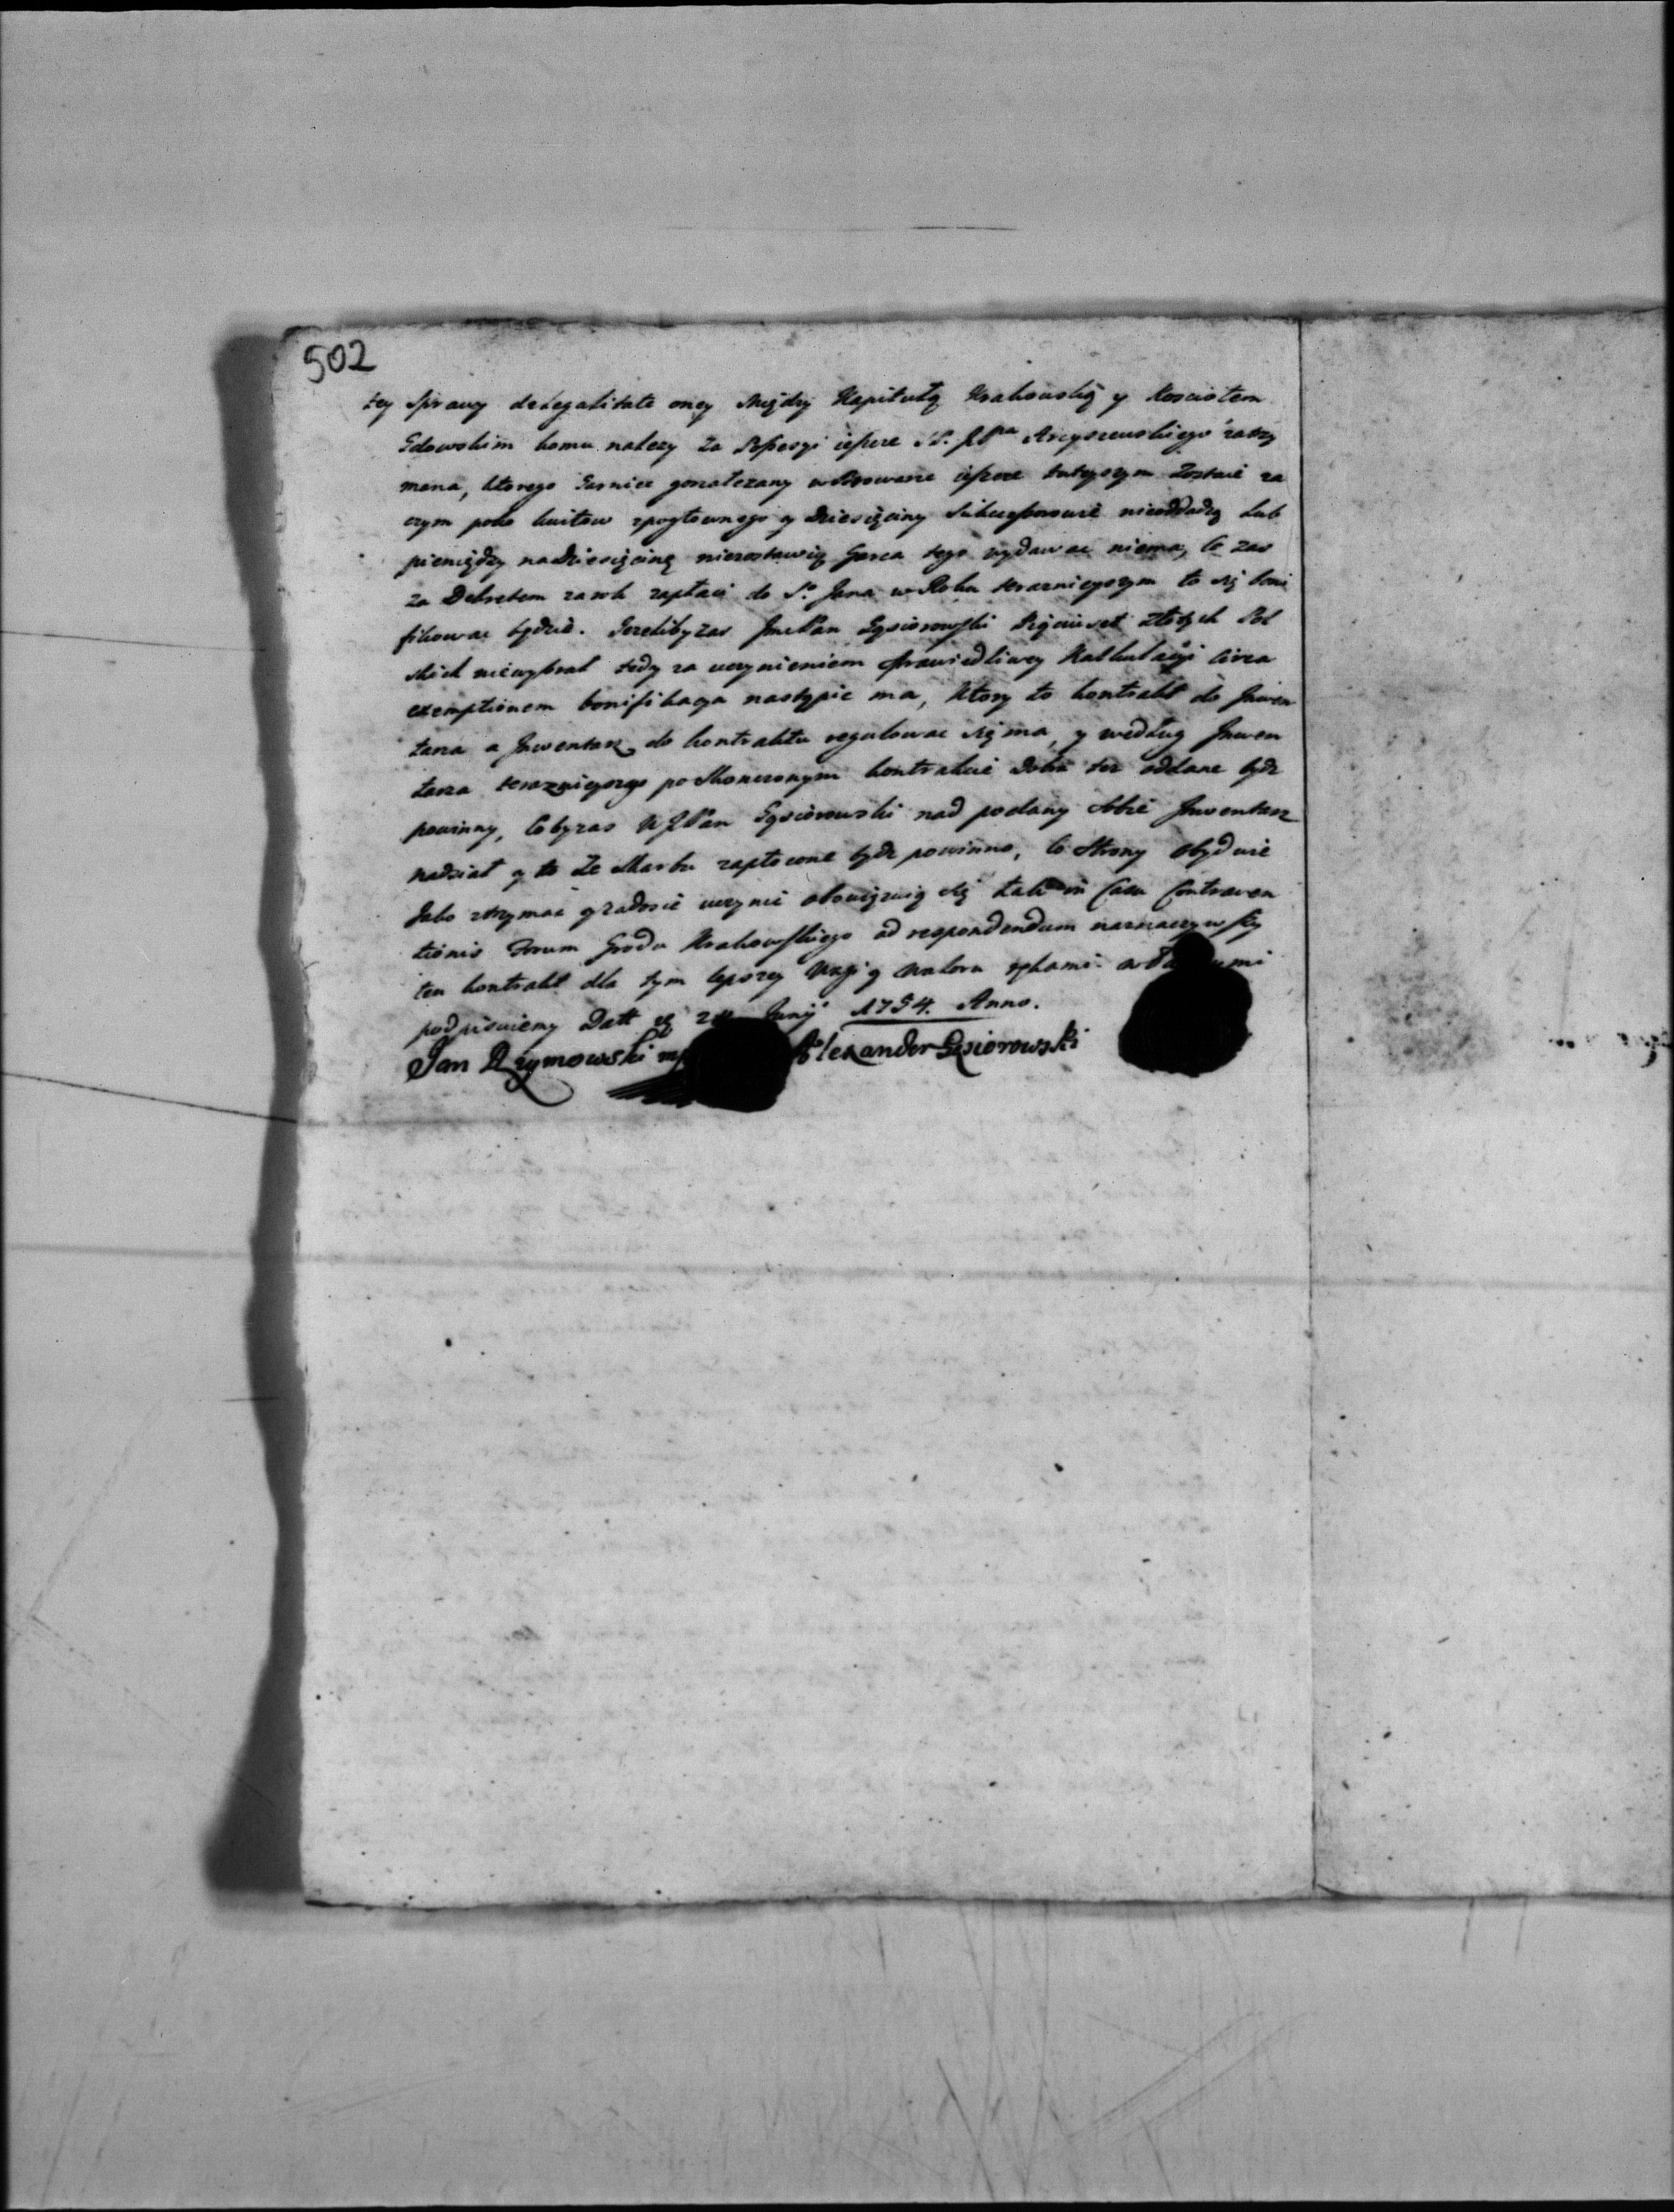 502
tey Sprawy de Legalitate oney Między Kapitułą Krakowską y Kosciołem
Gdowskim komu nalezy za Possesyi ieszcze Arcyszewskiego zatrzy
mana, ktorego Garniec w Browarze ieszcze tuteyszym Zostaie za
czym poko kwitow zpogłownego y Dziesięciny Sukcessorowie nieoddadzą Lub
pieniędzy na Dziesięcinę niezostawią Garca tego wydawac niema, Co zas
za Dekretem zasch zapłaci do S. Jana w Roku teraznieyszym to się boni
fikowac będzie. Jezelibyzas JmcPan Gąsiorowski Pięciuset złotych Pol
skich niewybrał tedy za uczynieniem sprawiedliwey Kalkulacyi circa
exemptionem bonifikacya nastąpic ma, Ktory to kontrakt do Inwen
tarza a Inwentarz do kontraktu regulowac się ma, y według Inwen
tarza terazniejszego po skonczonym kontrakcie Dobra tez oddane bydz
powinny, Cobyzas WJPan Gąsiorowski nad podany sobie Inwentarz
nadsiał y to ze Skarbu zapłacone bydz powinno, Co Strony Obydwie
Jako strzymac y zadosic uczynic obowiązuią się tak in Casu Contraven
tionis Forum Grodu Krakowskiego ad respondendum naznaczywszy
ten kontrakt dla tym lepszey Wagi y Waloru rękami
podpisuiemy Datt Junij 1754. Anno.
Jan Rzymowski mp Alexander Gąsiorowski